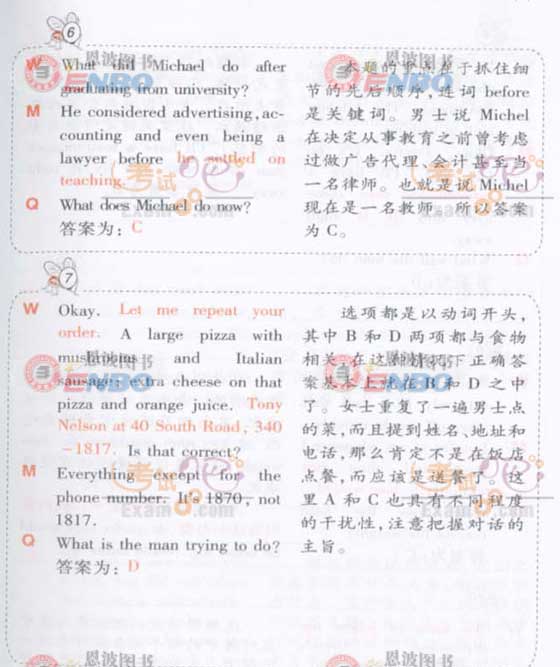 6
W What did Michael do after
graduating from university?
M He considered advertising, ac-
counting and even being a
lawyer before he settled on
teaching.
Q What does Michael do now?
答案为：C
本题的重点在于抓住细
节的先后顺序，连词 before
是关键词。男士说 Michel
在决定从事教育之前曾考虑
过做广告代理、会计甚至当
一名律师。也就是说 Michel
现在是一名教师，所以答案
为 C。
7
W Okay. Let me repeat your
order. A large pizza with
mushrooms and Italian
sausage; extra cheese on that
pizza and orange juice. Tony
Nelson at 40 South Road, 340
-1817. Is that correct?
M Everything except for the
phone number. It's 1870, not
1817.
Q What is the man trying to do?
答案为：D
选项都是以动词开头，
其中 B 和 D 两项都与食物
相关，在这种情况下正确答
案基本上就在 B 和 D 之中
了。女士重复了一遍男士点
的菜，而且提到姓名、地址和
电话，那么肯定不是在饭店
点餐，而应该是送餐了。这
里 A 和 C 也具有不同程度
的干扰性，注意把握对话的
主旨。
恩波图书
ENBO
恩波图书
ENBO
考试吧
Exam8.com
考试吧
Exam8.com
恩波图书
ENBO
恩波图书
ENBO
考试吧
Exam8.com
考试吧
Exam8.com
恩波图书
恩波图书